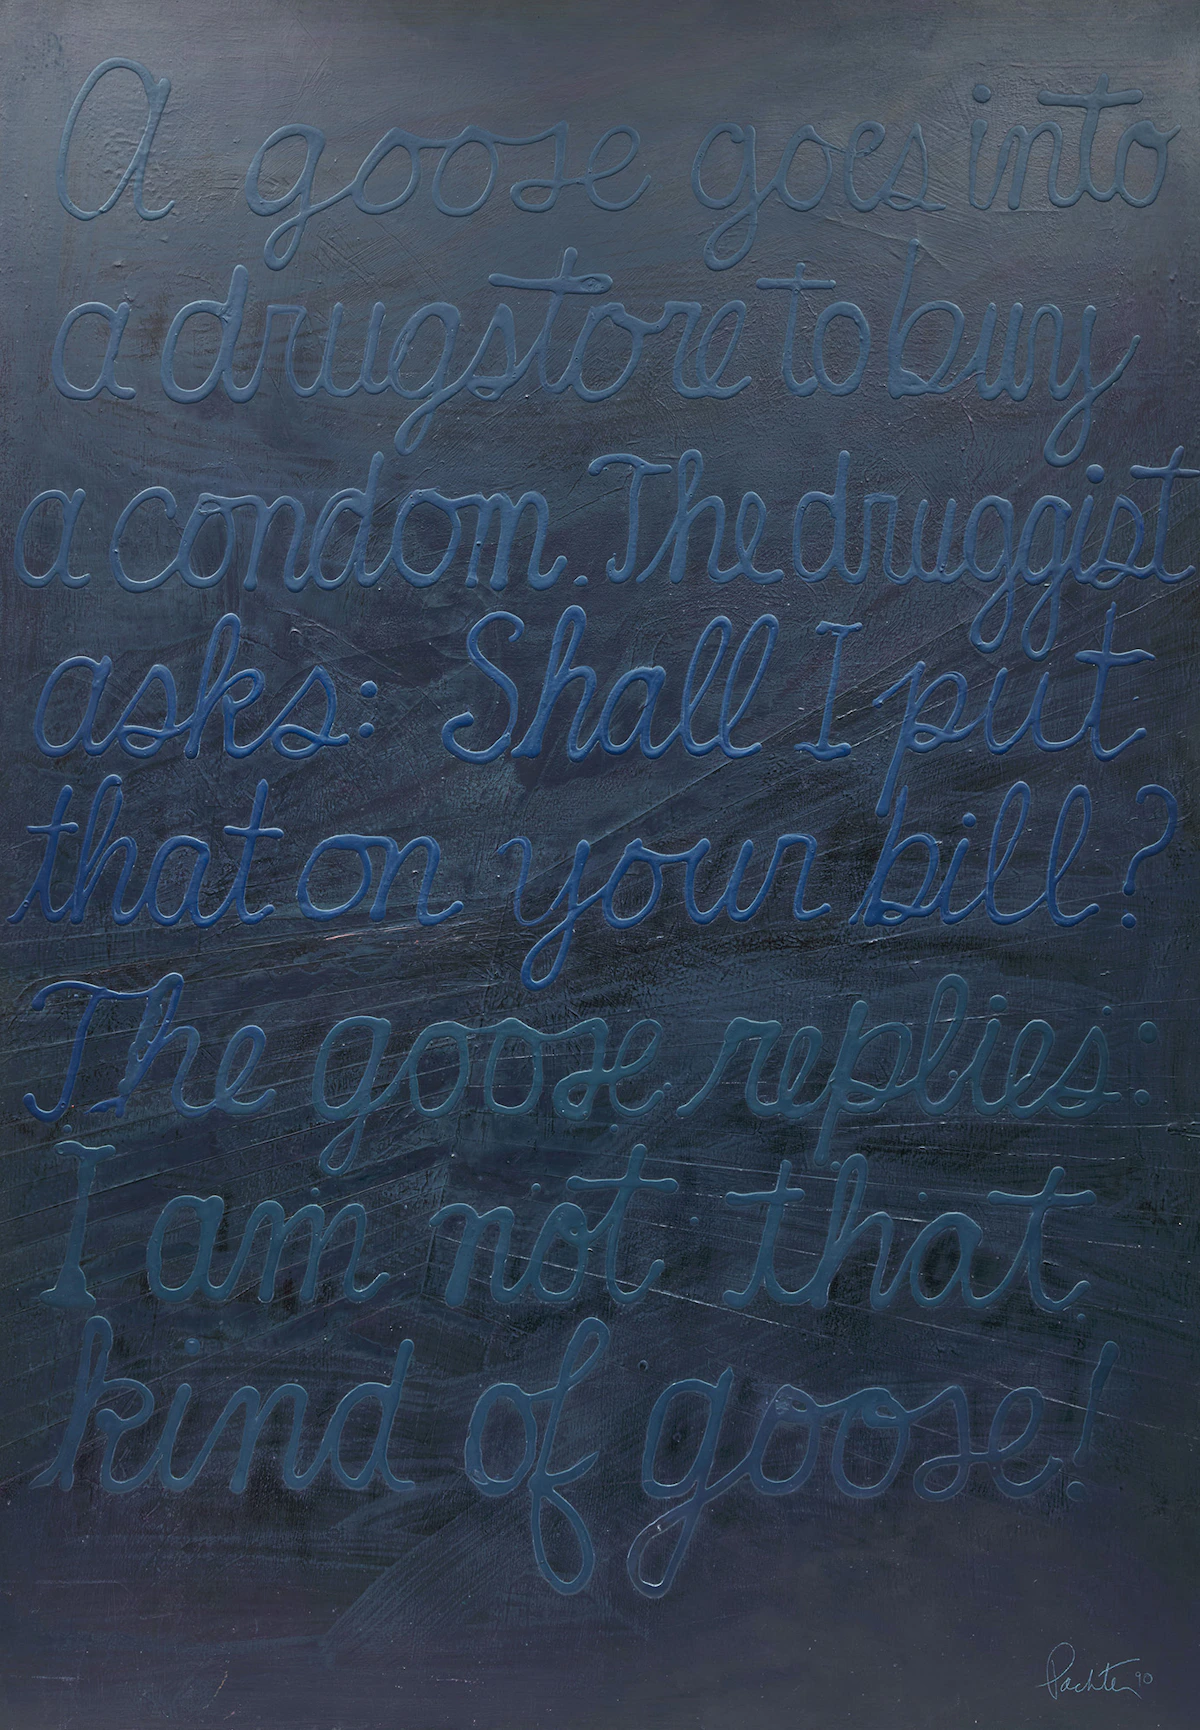 A goose goes into
a drugstore to buy
a condom. The druggist
asks: Shall I put
that on your bill?
The goose replies:
I am not that
kind of goose!
Pachter 90